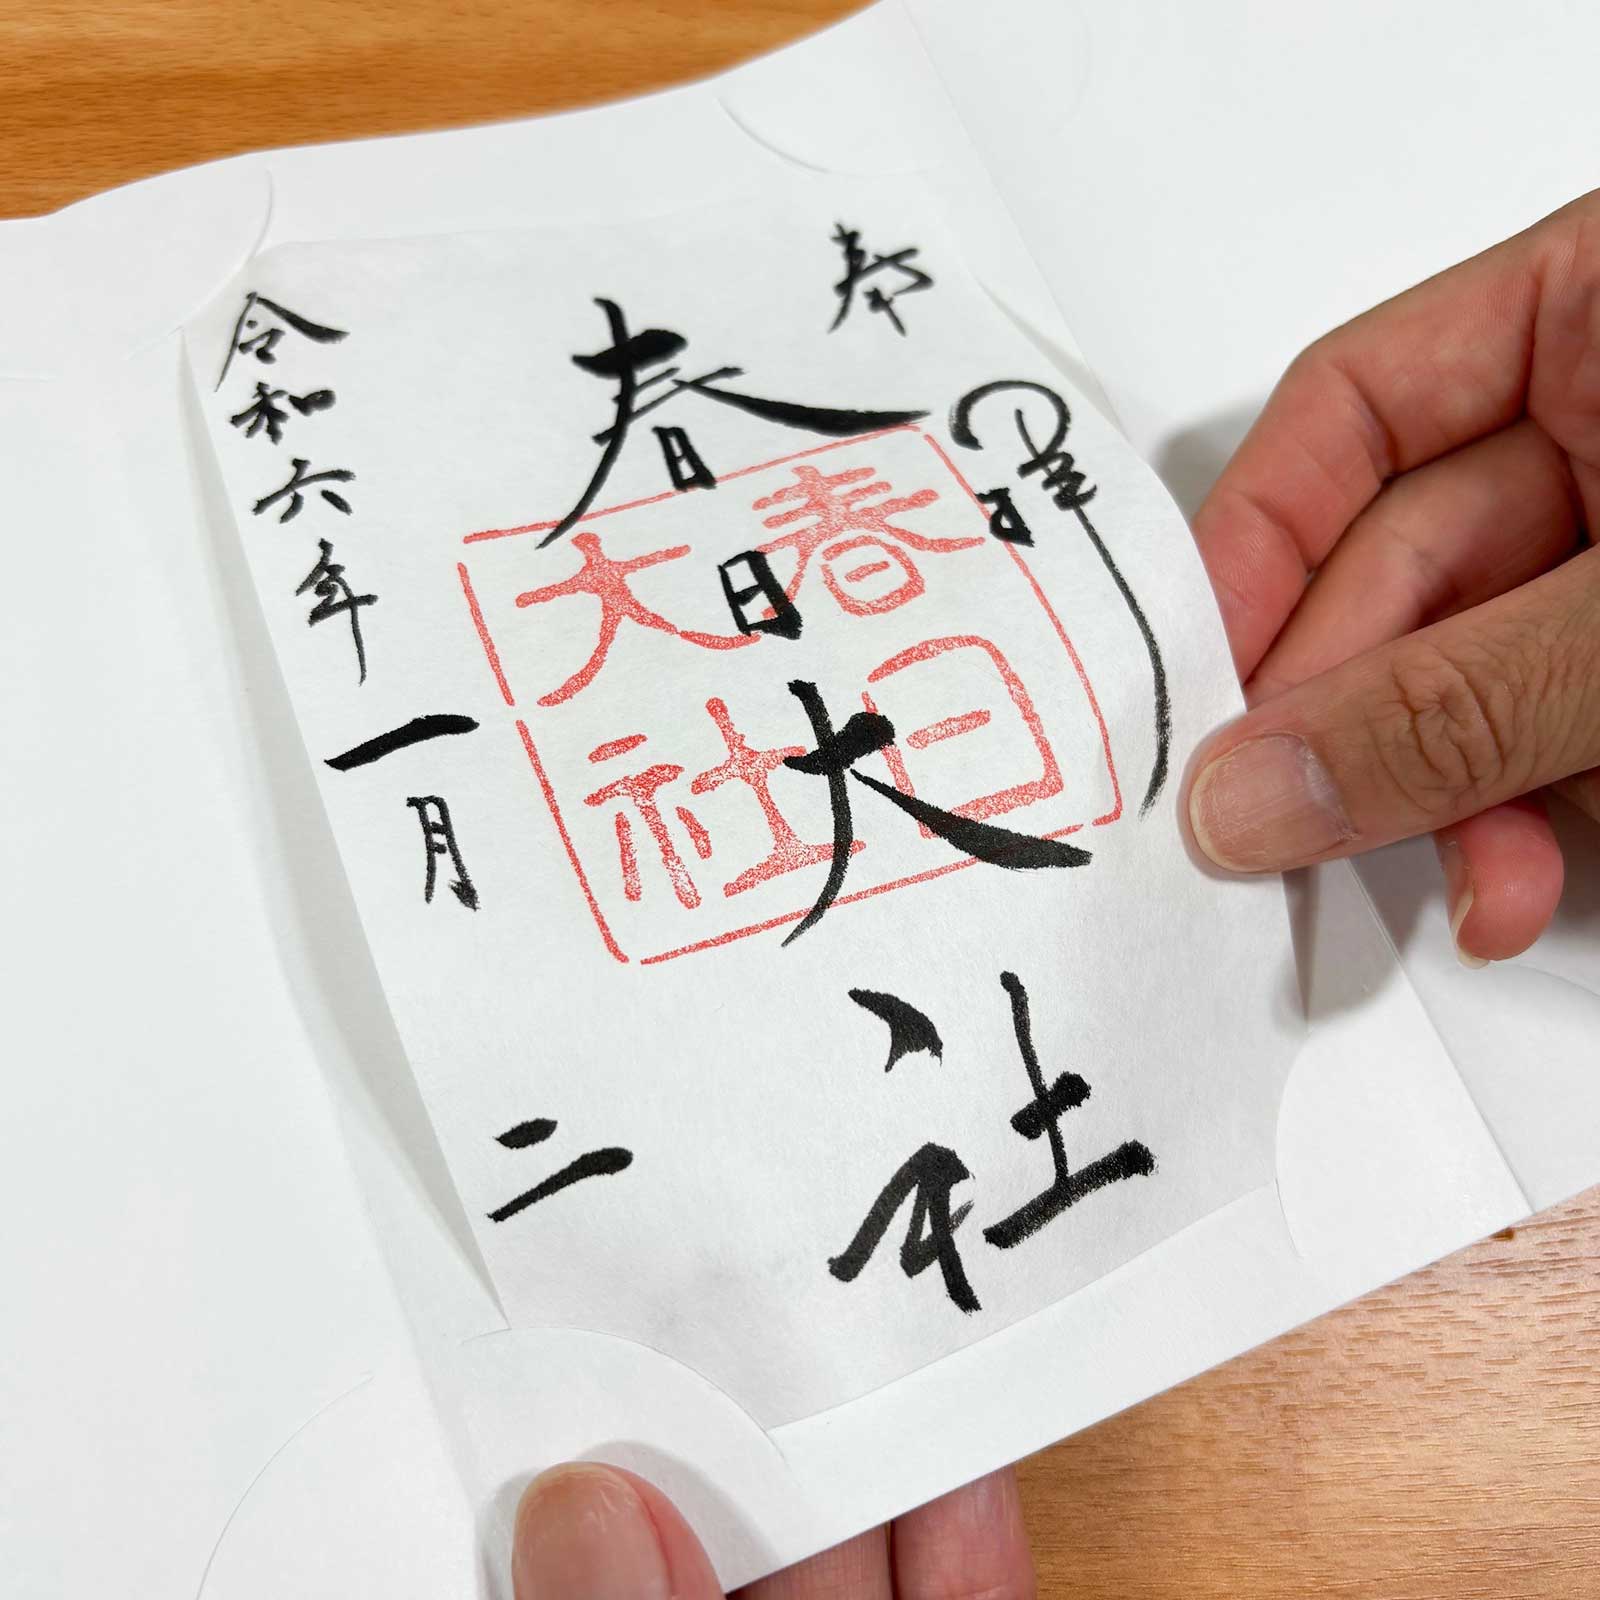 奉拝
春日大社
春日
大社
令和六年一月二